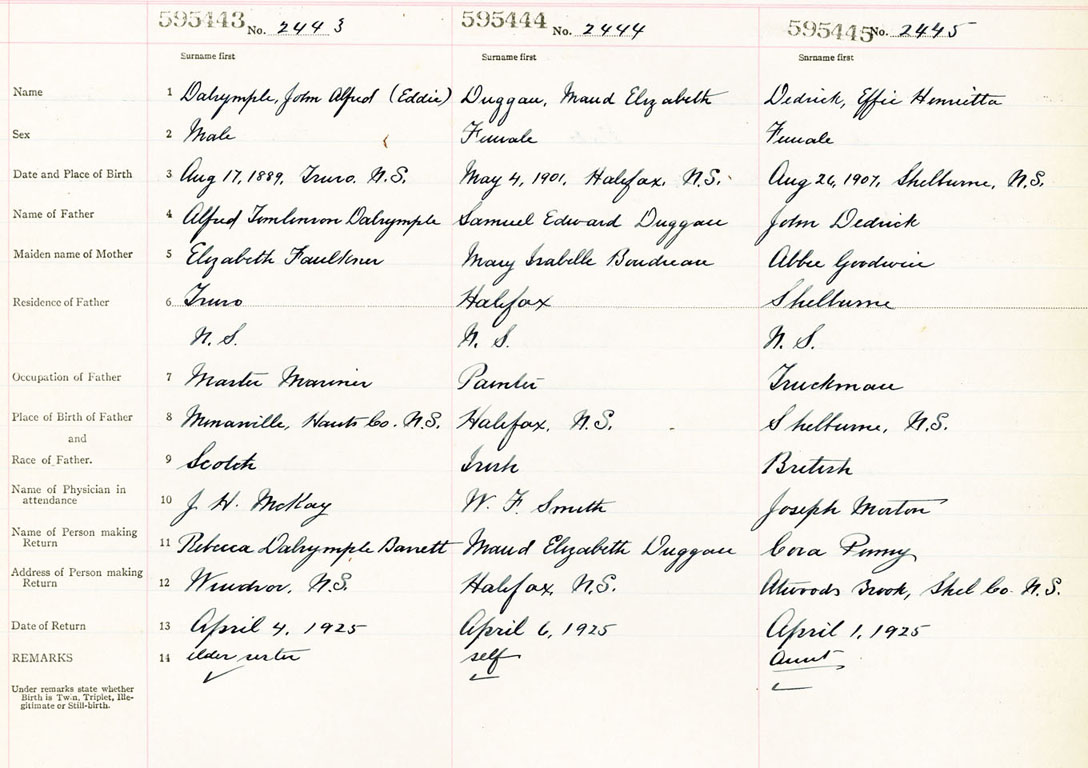 595443 No. 2443 595444 No. 2444 595445 No. 2445
Surname first Surname first Surname first
Name 1 Dalrymple, John Alfred (Eddie) Duggan, Maud Elizabeth Dedrick, Effie Henrietta
Sex 2 Male Female Female
Date and Place of Birth 3 Aug 17, 1889, Truro. N.S. May 4, 1901, Halifax, N.S. Aug 26, 1907, Shelburne, N.S.
Name of Father 4 Alfred Tomlinson Dalrymple Samuel Edward Duggan John Dedrick
Maiden name of Mother 5 Elizabeth Faulkner Mary Isabelle Boudreau Abbie Goodwin
Residence of Father 6 Truro Halifax Shelburne
N.S. N.S. N.S.
Occupation of Father 7 Master Mariner Painter Truckman
Place of Birth of Father 8 Hants Co. N.S. Halifax, N.S. Shelburne, N.S.
and
Race of Father. 9 Scotch Irish British
Name of Physician in
attendance 10 J. H. McKay W. F. Smith Joseph Morton
Name of Person making
Return 11 Rebecca Dalrymple Barrett Maud Elizabeth Duggan Cora Penny
Address of Person making
Return 12 Windsor, N.S. Halifax, N.S. Atwoods Brook, Shel Co. N.S.
Date of Return 13 April 4, 1925 April 6, 1925 April 1, 1925
REMARKS 14 elder sister self Aunt
Under remarks state whether
Birth is Twin, Triplet, Ille-
gitimate or Still-birth.